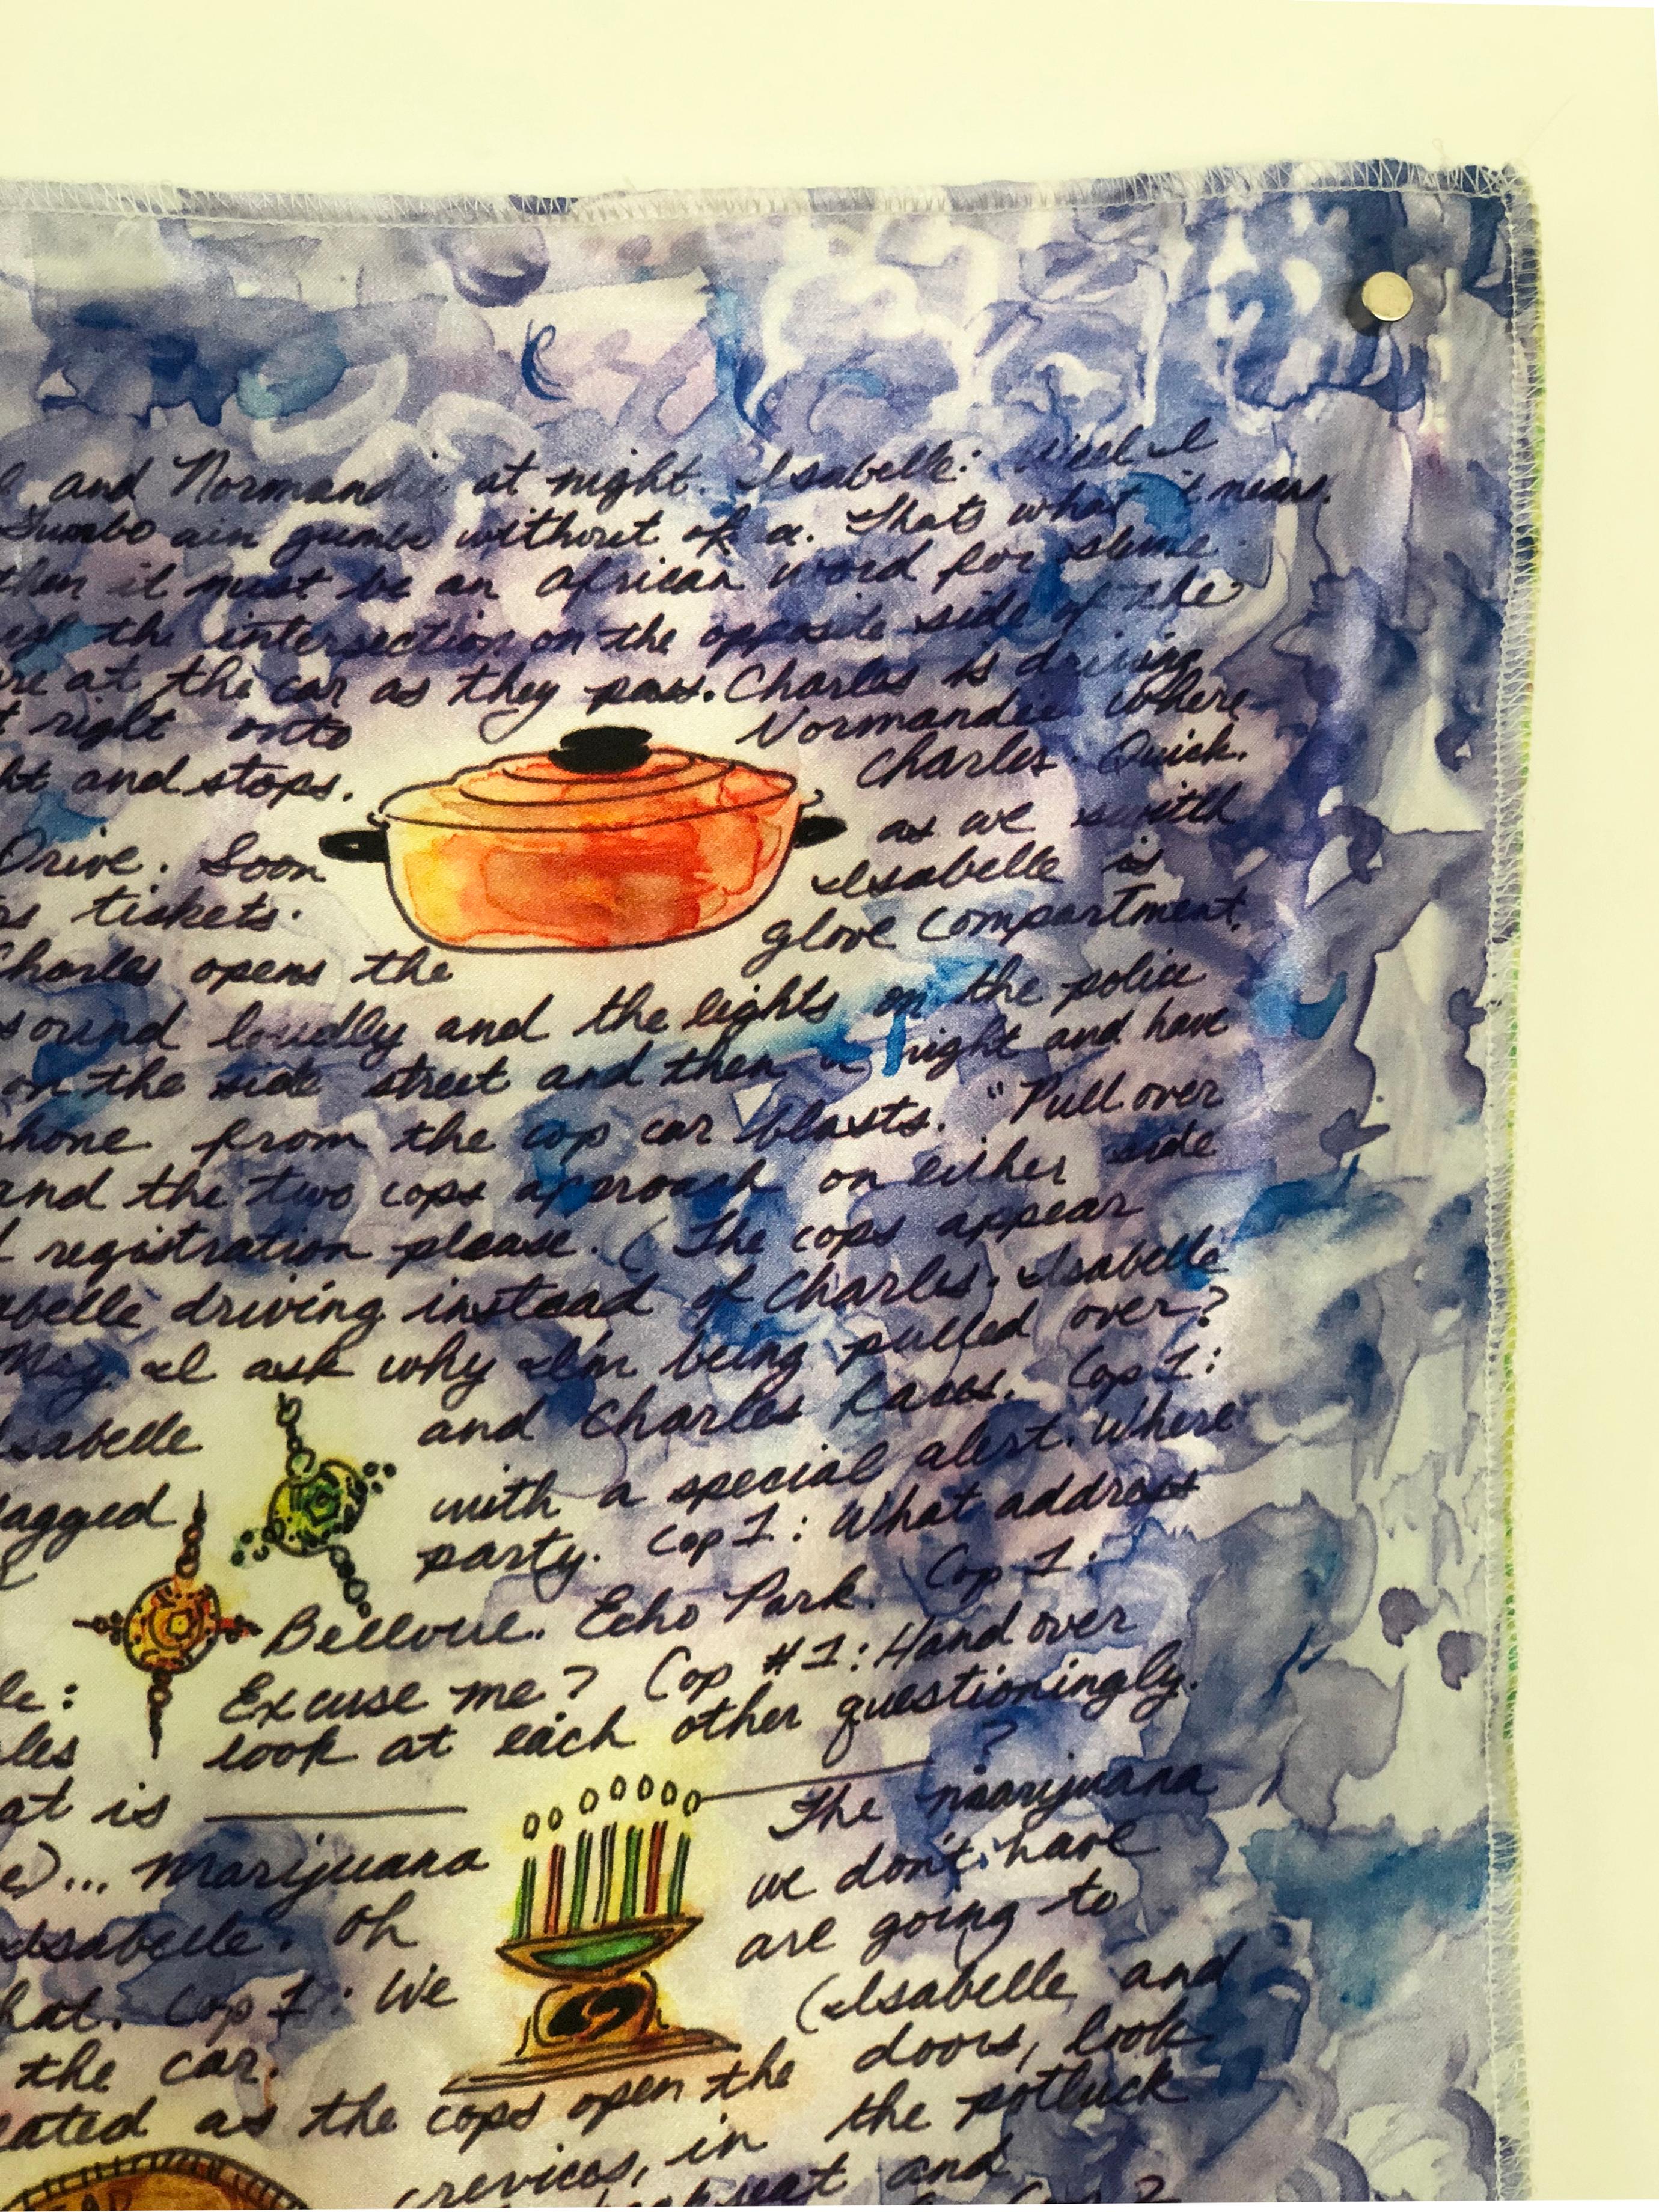 and Normandie at night. Isabelle: Well I
Gumbo ain gumbo without ok a. Thats what it means.
then it must be an African word for slime.
the intersection on the opposite side of the
at the car as they pass. Charles is driving
t right onto Normandie where
ht and stops. Charles. Quick.
Drive. Soon as we switch
tickets. Isabelle is
Charles opens the glove compartment.
sound loudly and the lights on the police
on the side street and then a right and have
hone from the cop car blasts. "Pull over
and the two cops aproach on either side
registration please. (The cops appear
abelle driving instead of Charles. Isabelle
May I ask why I'm being pulled over?
Isabelle and Charles Races. Cop 1:
lagged with a special alert. Where
party. Cop 1: What address
Bellvue. Echo Park. Cop 1.
le: Excuse me? Cop #1: Hand over
les look at each other questioningly.
at is ____ ____?
e)... marijuana The marijuana
Isabelle. Oh we don't have
hat. Cop 1: We are going to
the car. (Isabelle and
eated as the cops open the doors, look
crevices, in the potluck
and
EAR